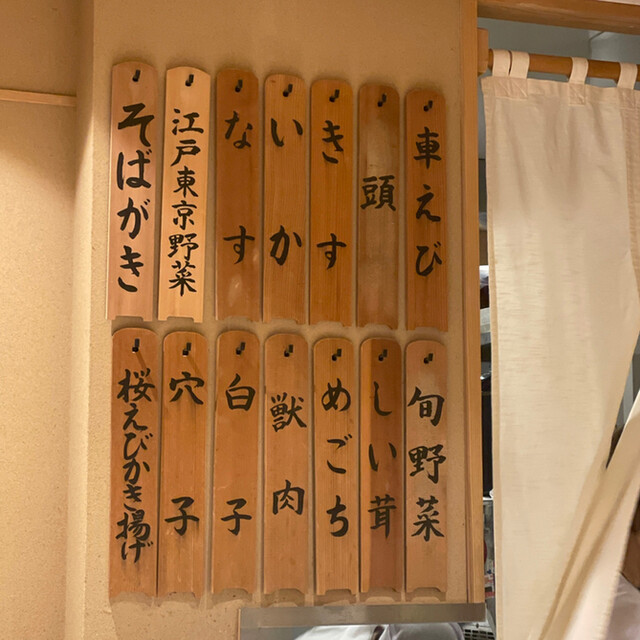 車えび
頭
きす
いか
なす
江戸東京野菜
そばがき
旬野菜
しい茸
めごち
獣肉
白子
穴子
桜えびかき揚げ